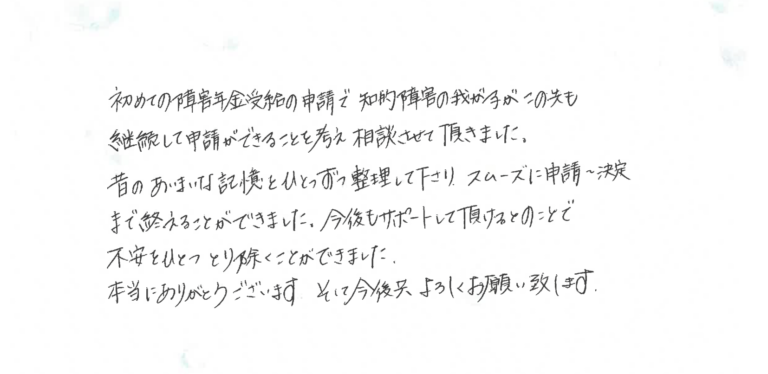 初めての障害年金受給の申請で 知的障害の我が子が この先も
継続して申請ができることを考え 相談させて頂きました。
昔の あいまいな記憶をひとつずつ整理して下さり スムーズに申請～決定
まで終えることができました。今後もサポートして頂けるとのことで
不安をひとつ とり除くことができました.
本当にありがとうございます そして今後共 よろしくお願い致します.